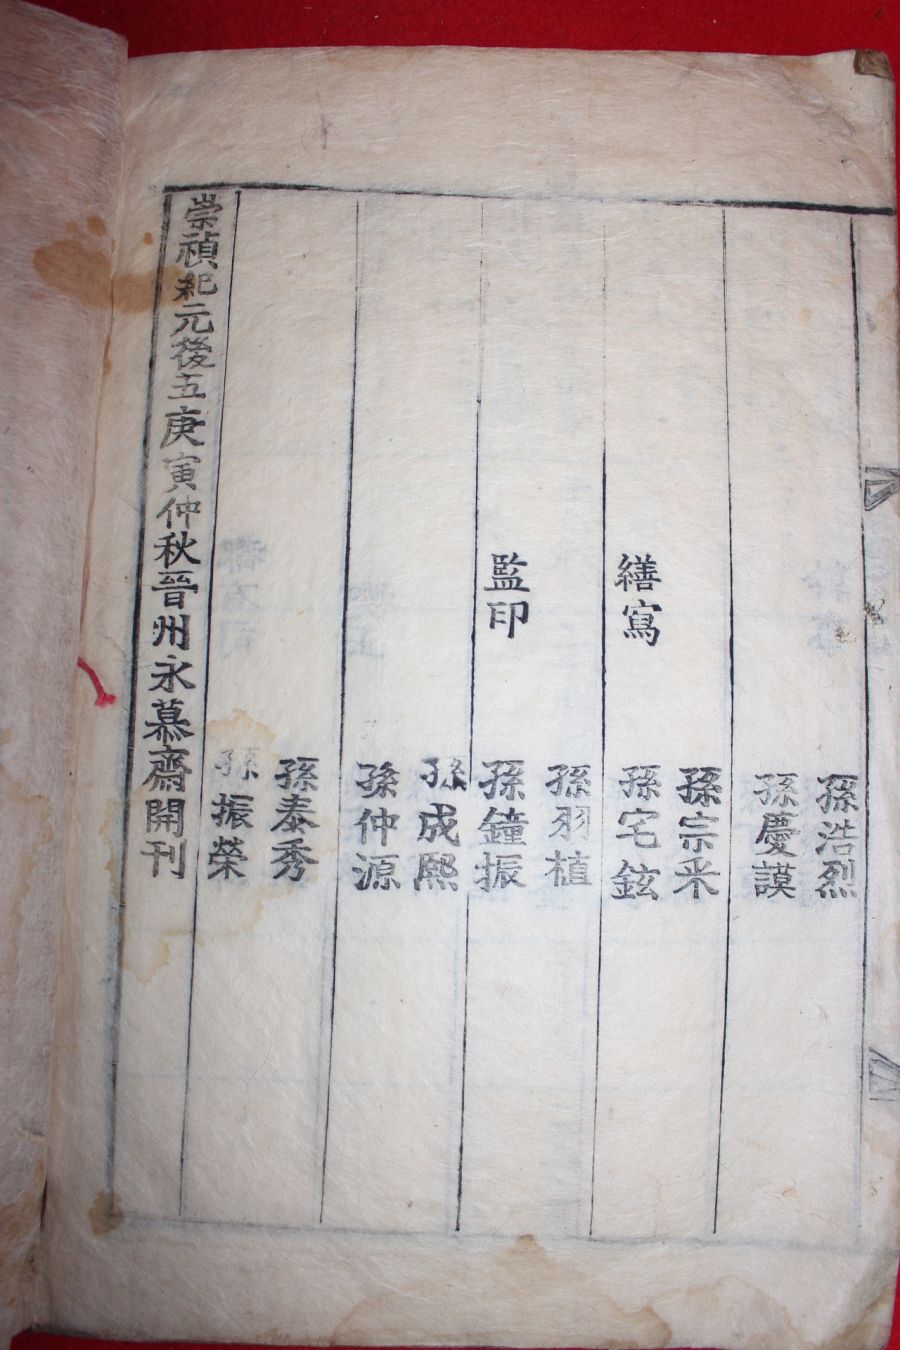 孫浩烈
孫慶謨
繕寫
孫宗米
孫宅鉉
監印
孫羽植
孫鐘振
孫成熙
孫仲源
孫泰秀
孫振榮
崇禎紀元後五庚寅仲秋晉州永慕齋開刊